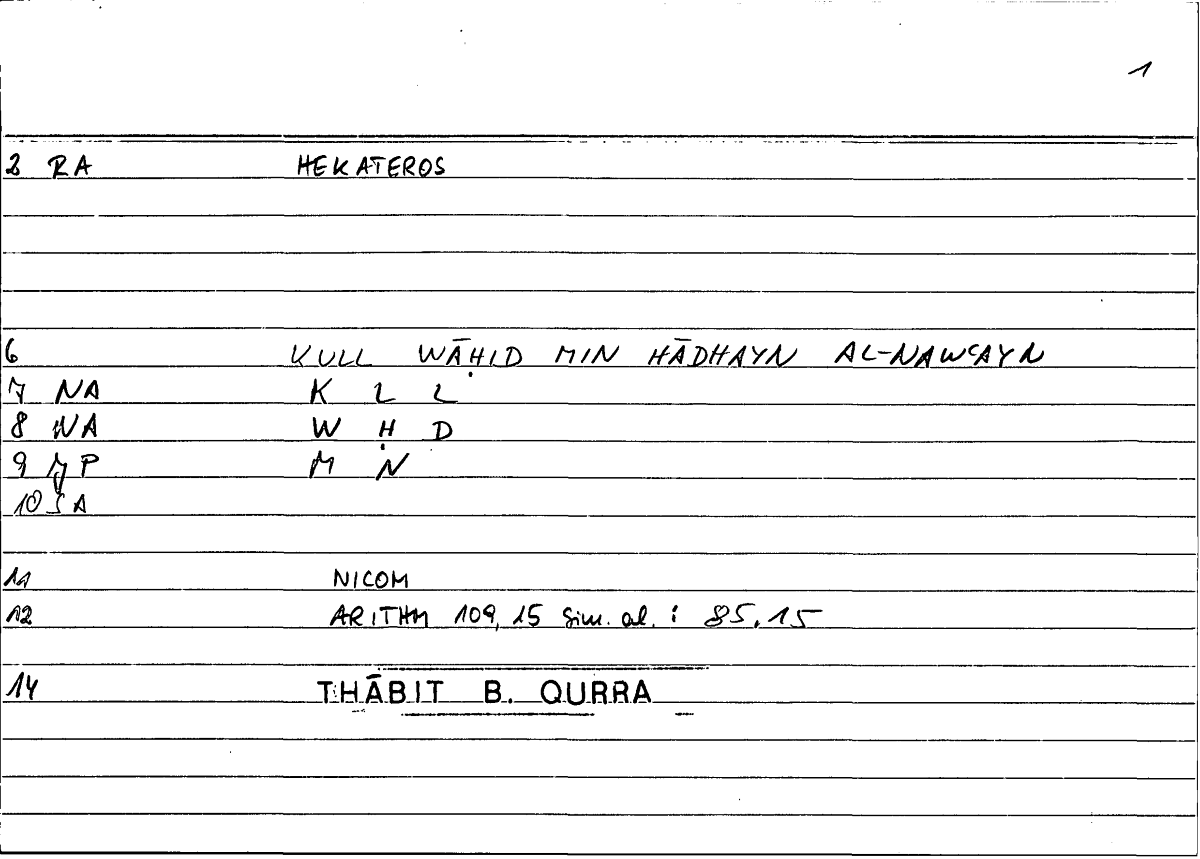 1
2 RA HEKATEROS
6 KULL WĀḤID MIN HĀDHAYN AL-NAWʿAYN
7 NA K L L
8 NA W Ḥ D
9 7P M Ṅ
10 SA
11 NICOM
12 ARITHM 109, 15 sim. al. : 85.15
14 THĀBIT B. QURRA